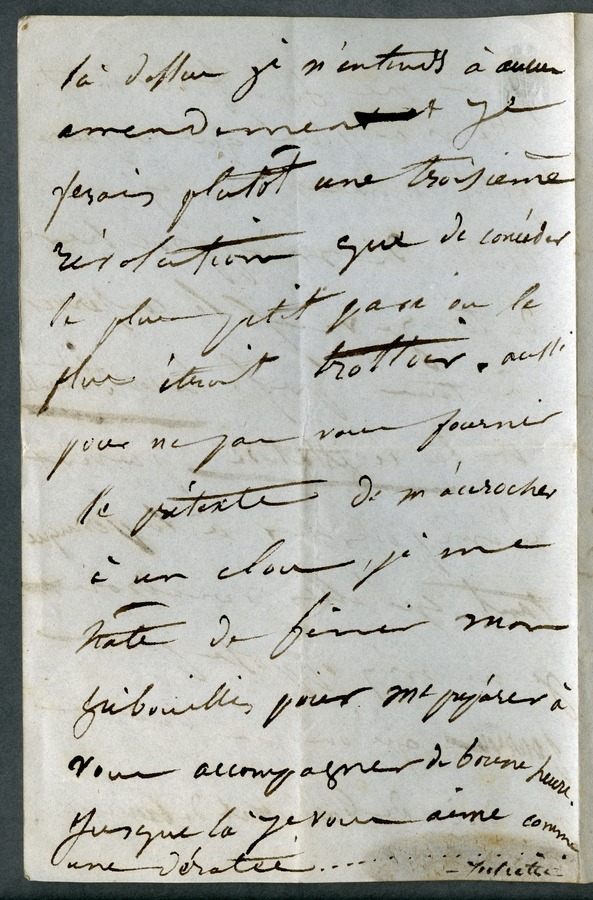 là dessus je n'entends à aucun
amendement et je
ferais plutôt une troisième
révolution que de concéder
le plus petit pavé ou le
plus étroit trottoir. aussi
pour ne pas vous fournir
le prétexte de m'accrocher
à un clou, je me
hâte de finir mon
gribouillis pour me préparer à
vous accompagner de bonne heure.
Jusque là je vous aime comme
une dératée..............
- Juliette -